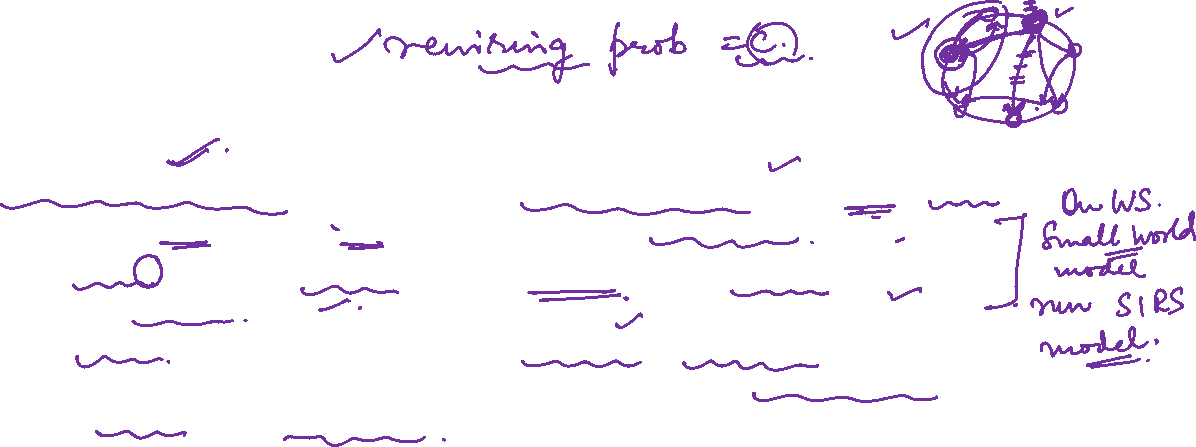 rewiring prob = C.
On WS.
Small World
model
run SIRS
model.